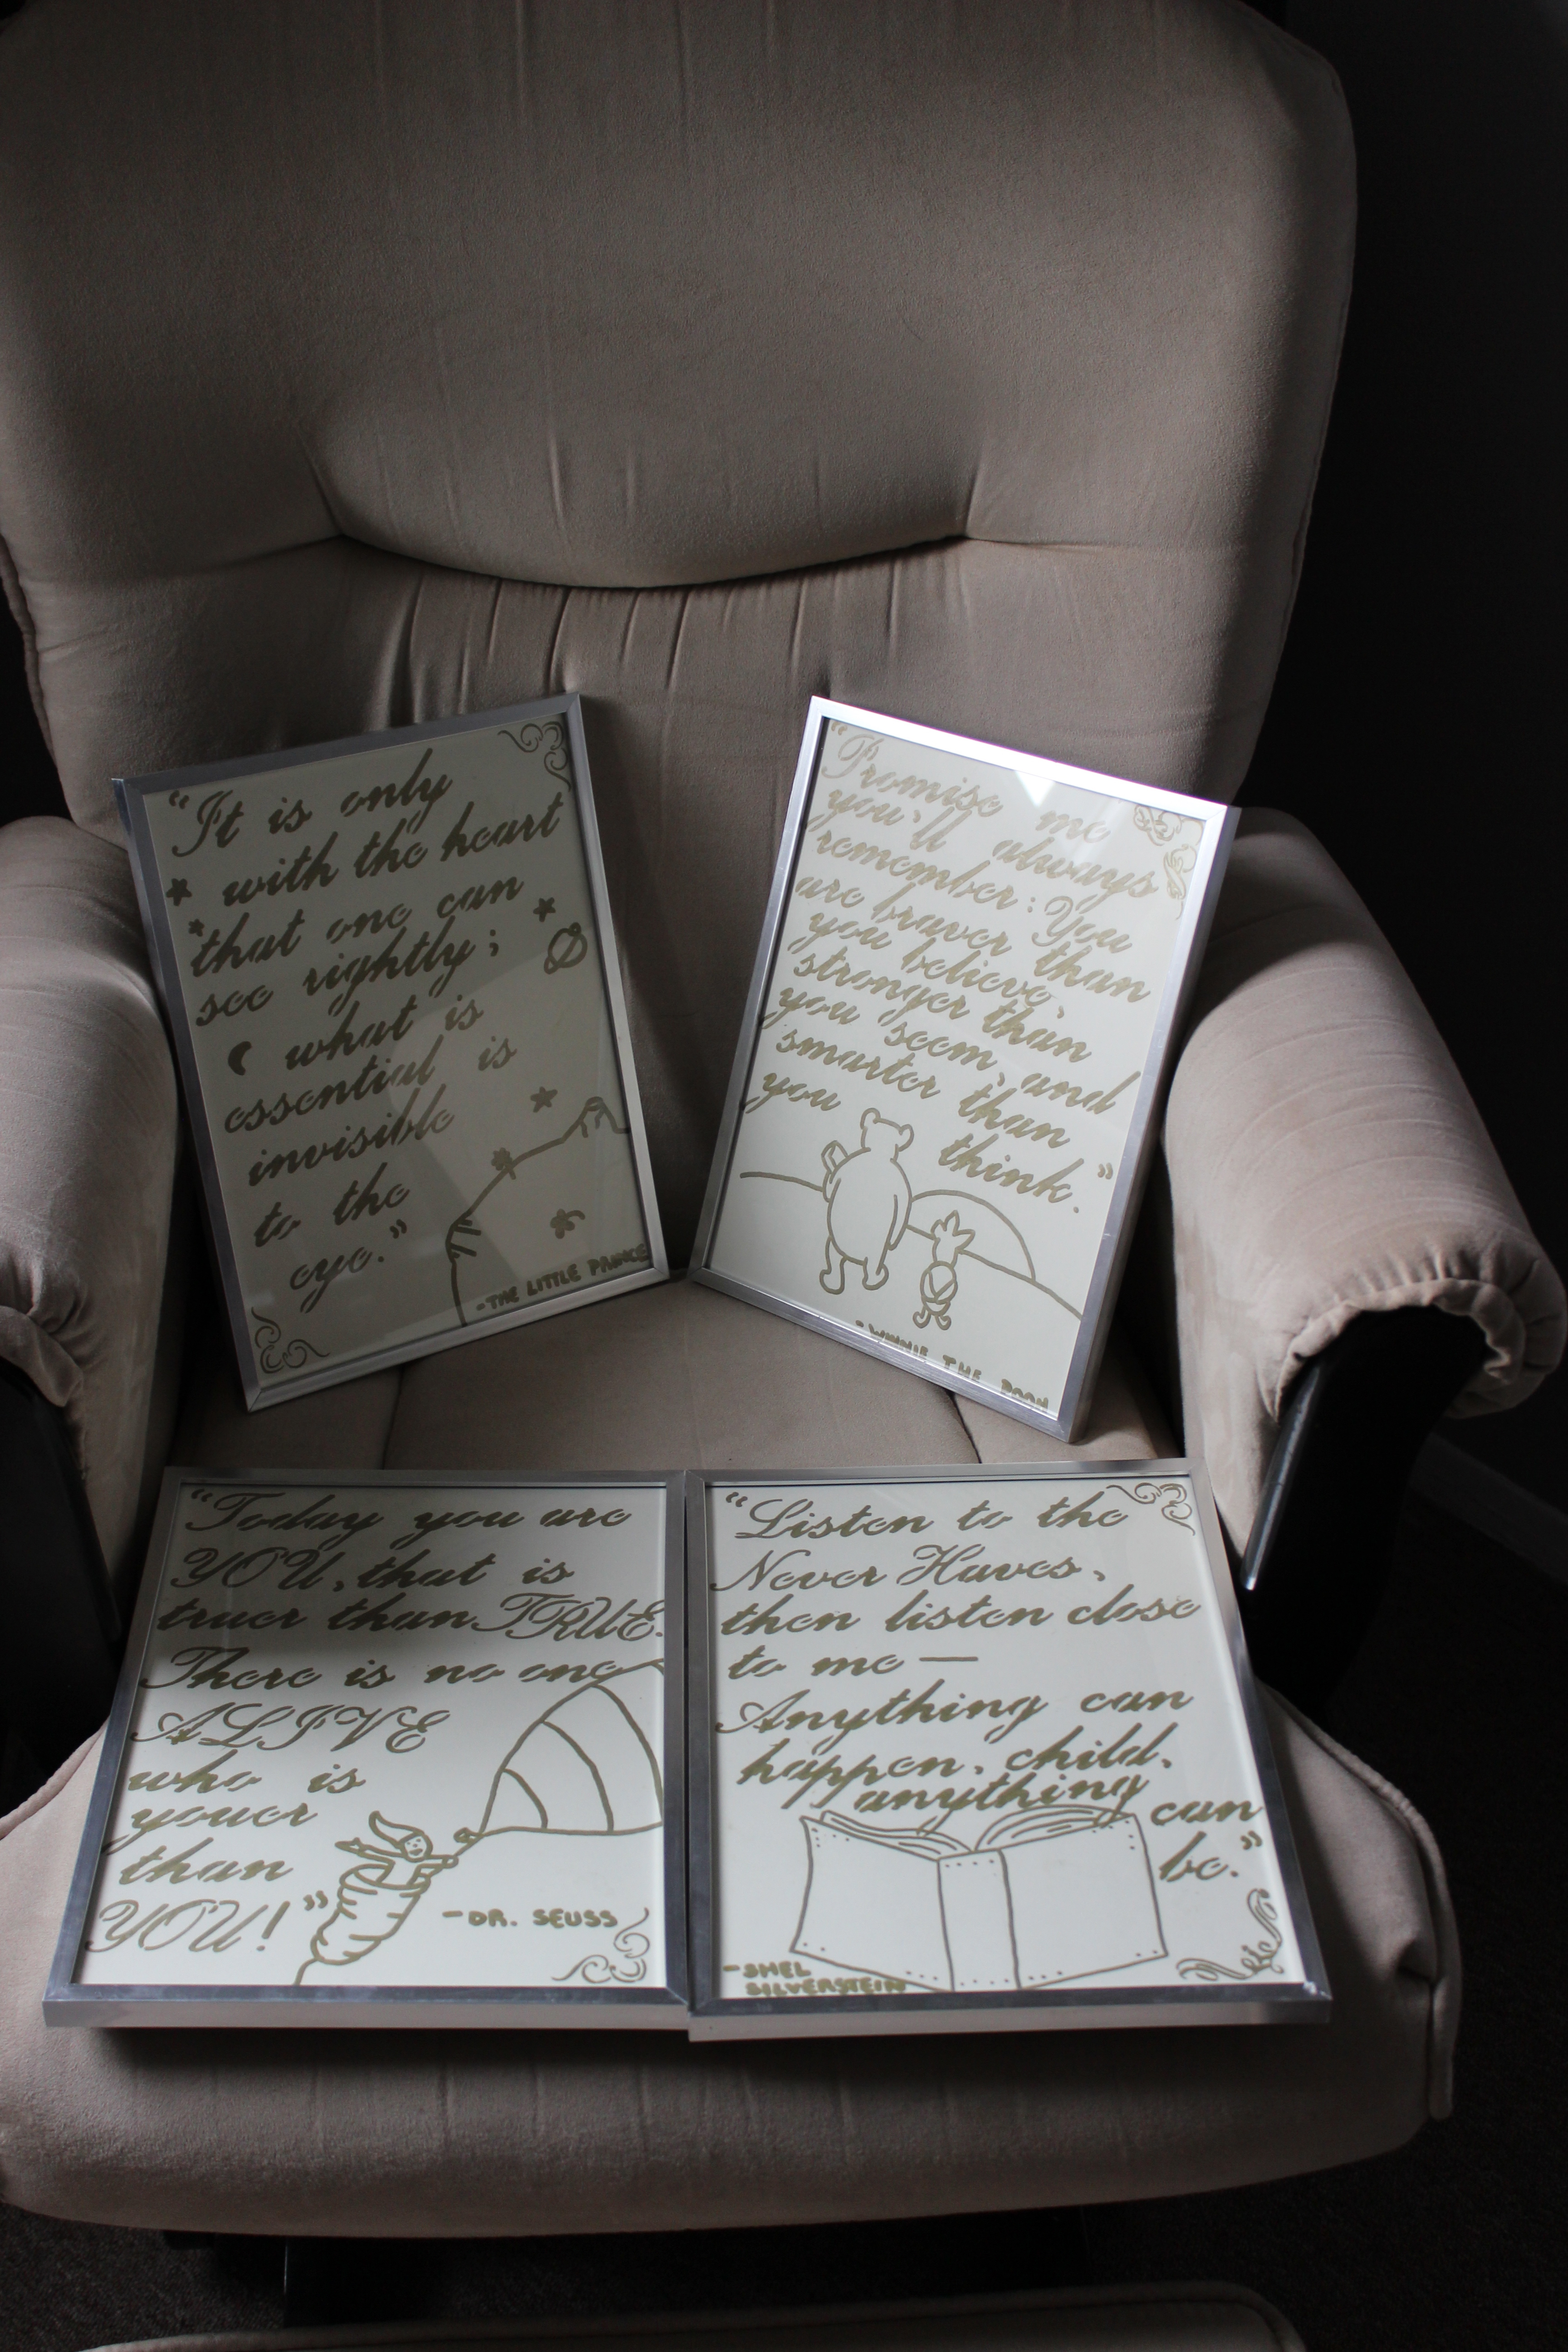 "It is only
with the heart
that one can
see rightly;
what is
essential is
invisible
to the
eye."
-THE LITTLE PRINCE
"Promise me
you'll always
remember: You
are braver than
you believe,
stronger than
you seem, and
smarter than
you think."
-WINNIE THE POOH
"Today you are
YOU, that is
truer than TRUE.
There is no one
ALIVE
who is
youer
than
YOU!"
-DR. SEUSS
"Listen to the
Never Haves,
then listen close
to me—
Anything can
happen, child,
anything can
be."
-SHEL
SILVERSTEIN